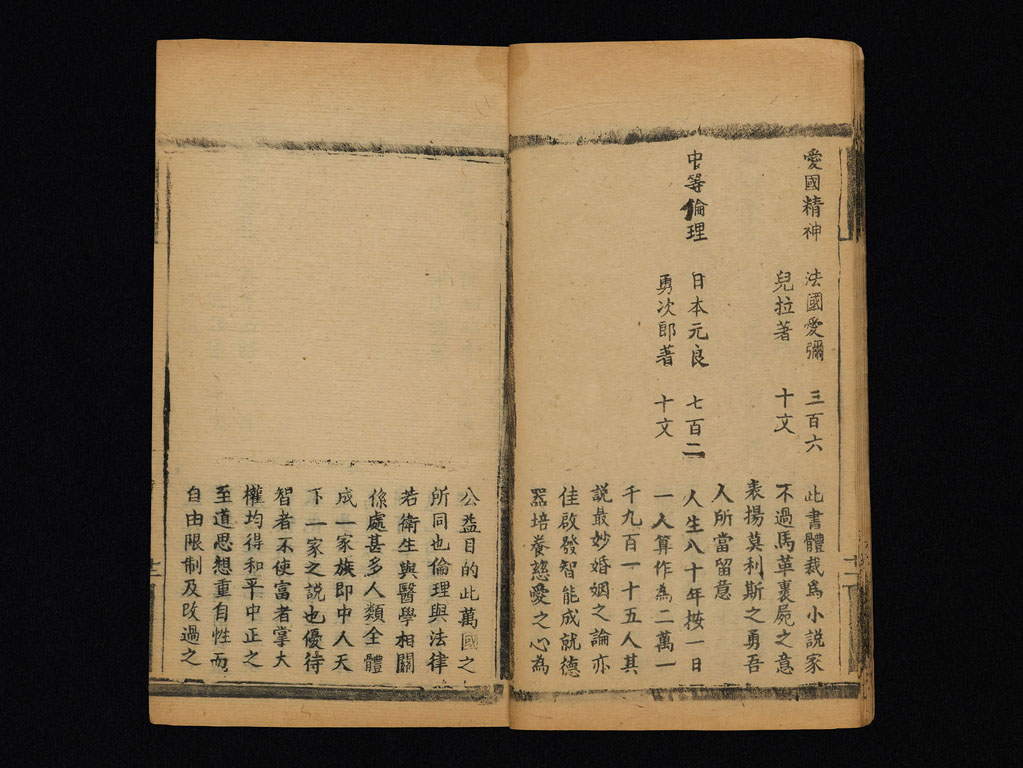 愛國精神 法國愛彌 三百六 此書體裁爲小説家
兒拉著 十文 不過馬革裹屍之意
表揚莫利斯之勇吾
人所當留意
中等倫理 日本元良 七百二 人生八十年按一日
勇次郎著 十文 一人算作為二萬一
千九百一十五人其
説最妙婚姻之論亦
佳啟發智能成就德
器培養慈愛之心為
公益目的此萬國之
所同也倫理與法律
若衛生與醫學相關
係處甚多人類全體
成一家族即中人天
下一家之説也優待
智者不使富者掌大
權均得和平中正之
至道思想重自性而
自由限制及改過之
十二